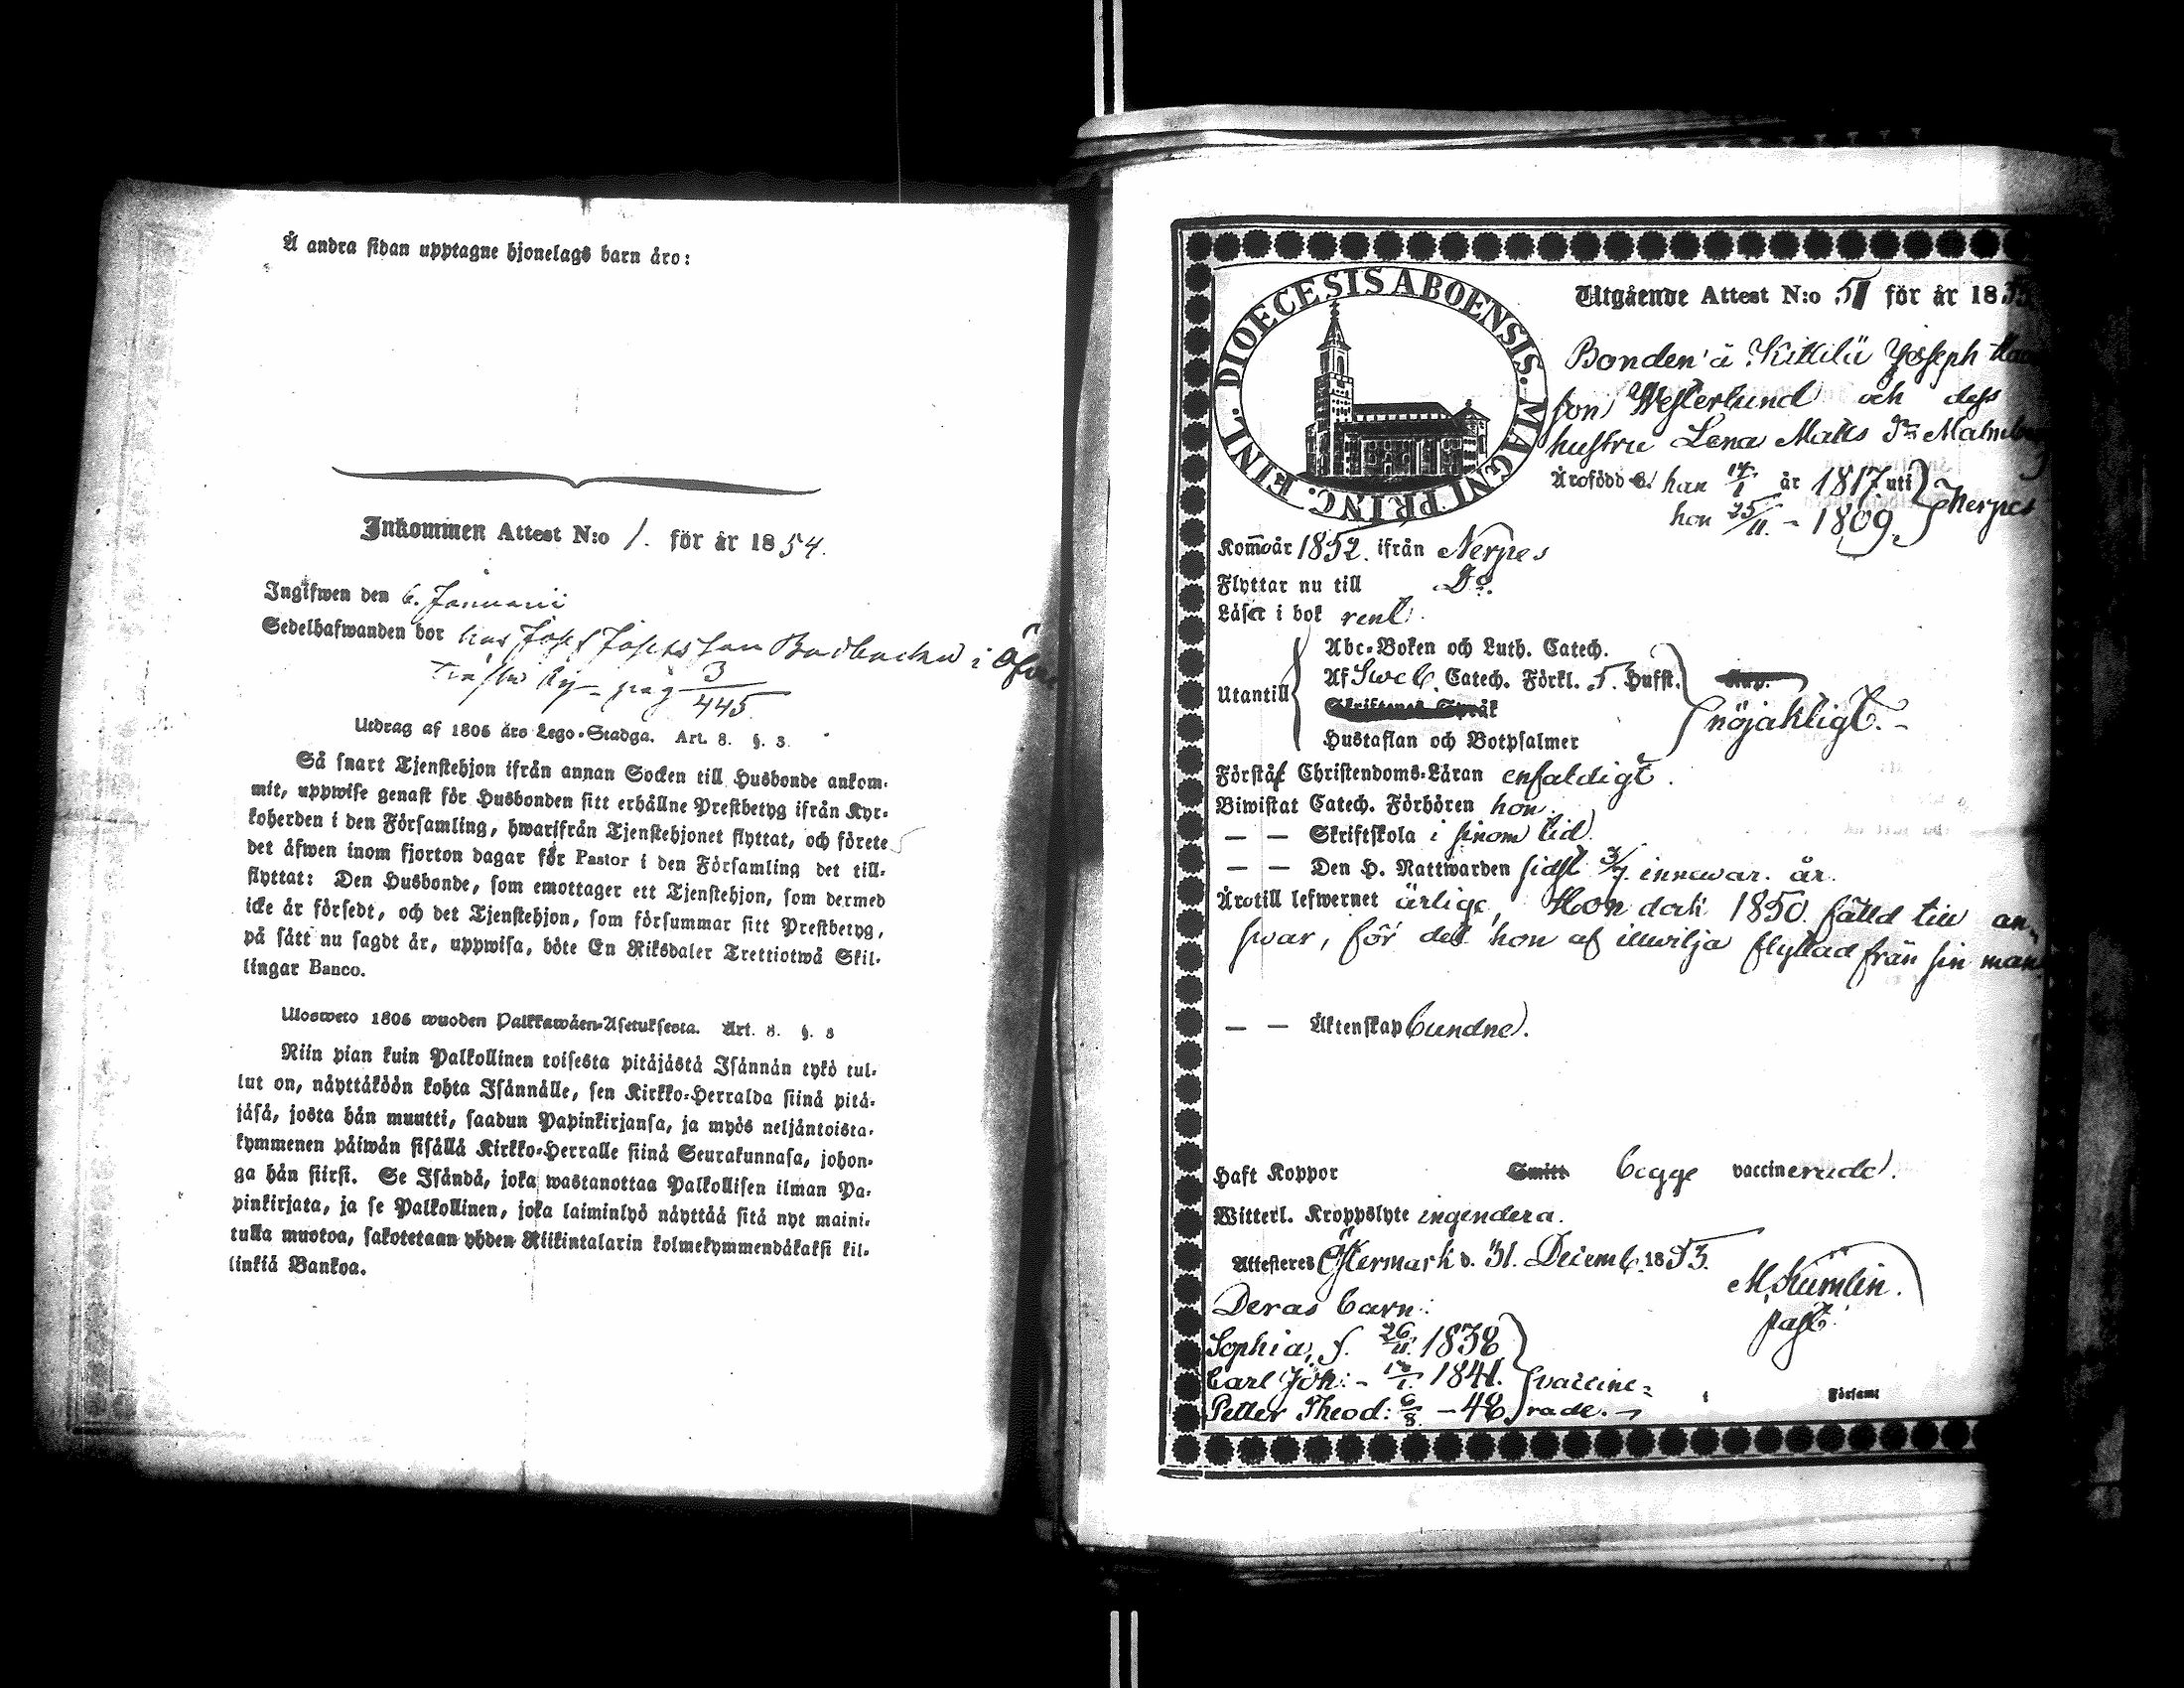 Å andra sidan upptagne hjonelags barn äro:
Inkommen Attest N:o 1. för år 1854.
Ingifwen den 6. Januarii
Sedelhafwanden bor hos Josef Josefsson i
pag 3/445
Utdrag af 1805 års Lego-Stadga. Art. 8. §. 3.
Så snart Tjenstehjon ifrån annan Socken till Husbonde ankom-
mit, uppwise genast för Husbonden sitt erhållne Prestbetyg ifrån Kyr-
koherden i den Församling, hwarifrån Tjenstehjonet flyttat, och förete
det äfwen inom fjorton dagar för Pastor i den Församling det till-
flyttat: Den Husbonde, som emottager ett Tjenstehjon, som dermed
icke är försedt, och det Tjenstehjon, som försummar sitt Prestbetyg,
på sätt nu sagdt är, uppwisa, böte En Riksdaler Trettiotwå Skil-
lingar Banco.
Ulosweto 1805 wuoden Palkkawäen-Asetuksesta. Art. 8. §. 3
Niin pian kuin Palkollinen toisesta pitäjästä Isännän tykö tul-
lut on, näyttäköön kohta Isännälle, sen Kirkko-Herralda siinä pitä-
jäsä, josta hän muutti, saadun Papinkirjansa, ja myös neljäntoista-
kymmenen päiwän sisällä Kirkko-Herralle siinä Seurakunnasa, johon-
ga hän siirsi. Se Isändä, joka wastanottaa Palkollisen ilman Pa-
pinkirjata, ja se Palkollinen, joka laiminlyö näyttää sitä nyt maini-
tulla muotoa, sakotetaan yhden Riikintalarin kolmekymmendäkaksi kil-
linkiä Bankoa.
DIOECESIS ABOENSIS. MAGNI PRINC. FINL.
Utgående Attest N:o 51 för år 1853
Bonden å Kittilä Joseph
son Westerlund och dess
hustru Lena Matts Dr Malmberg
Ärofödde han 14/1 år 1817 uti } Nerpes
hon 25/11. - 1809.
Kommoår 1852. ifrån Nerpes
Flyttar nu till Do.
Läser i bok rent
Utantill
Abc-Boken och Luth. Catech.
Af Sweb. Catech. Förkl. 5. Hufst.
Skriftenes Språk
Hustaflan och Botpsalmer
nöjaktigt.-
Förstå Christendoms-Läran enfaldigt.
Biwistat Catech. Förhören hon.
— — Skriftskola i sinom tid.
— — Den H. Nattwarden sidst 3/7. innewar. år.
Ärotill lefwernet ärlige, Hon dock 1850. fälld till an-
swar, för det hon af illwilja flyttad från sin man
— — Äktenskap bundne.
Haft Koppor Smitt begge vaccinerade.
Witterl. Kroppslyte ingendera.
Attesteres Östermark d. 31. Decemb. 1853.
M. Kumlin.
past.
Deras barn:
Sophia, f. 26/11. 1838
Carl Joh: - 1841.
Petter Theod: 6/8. - 48
vaccine-
rade. -
Församl